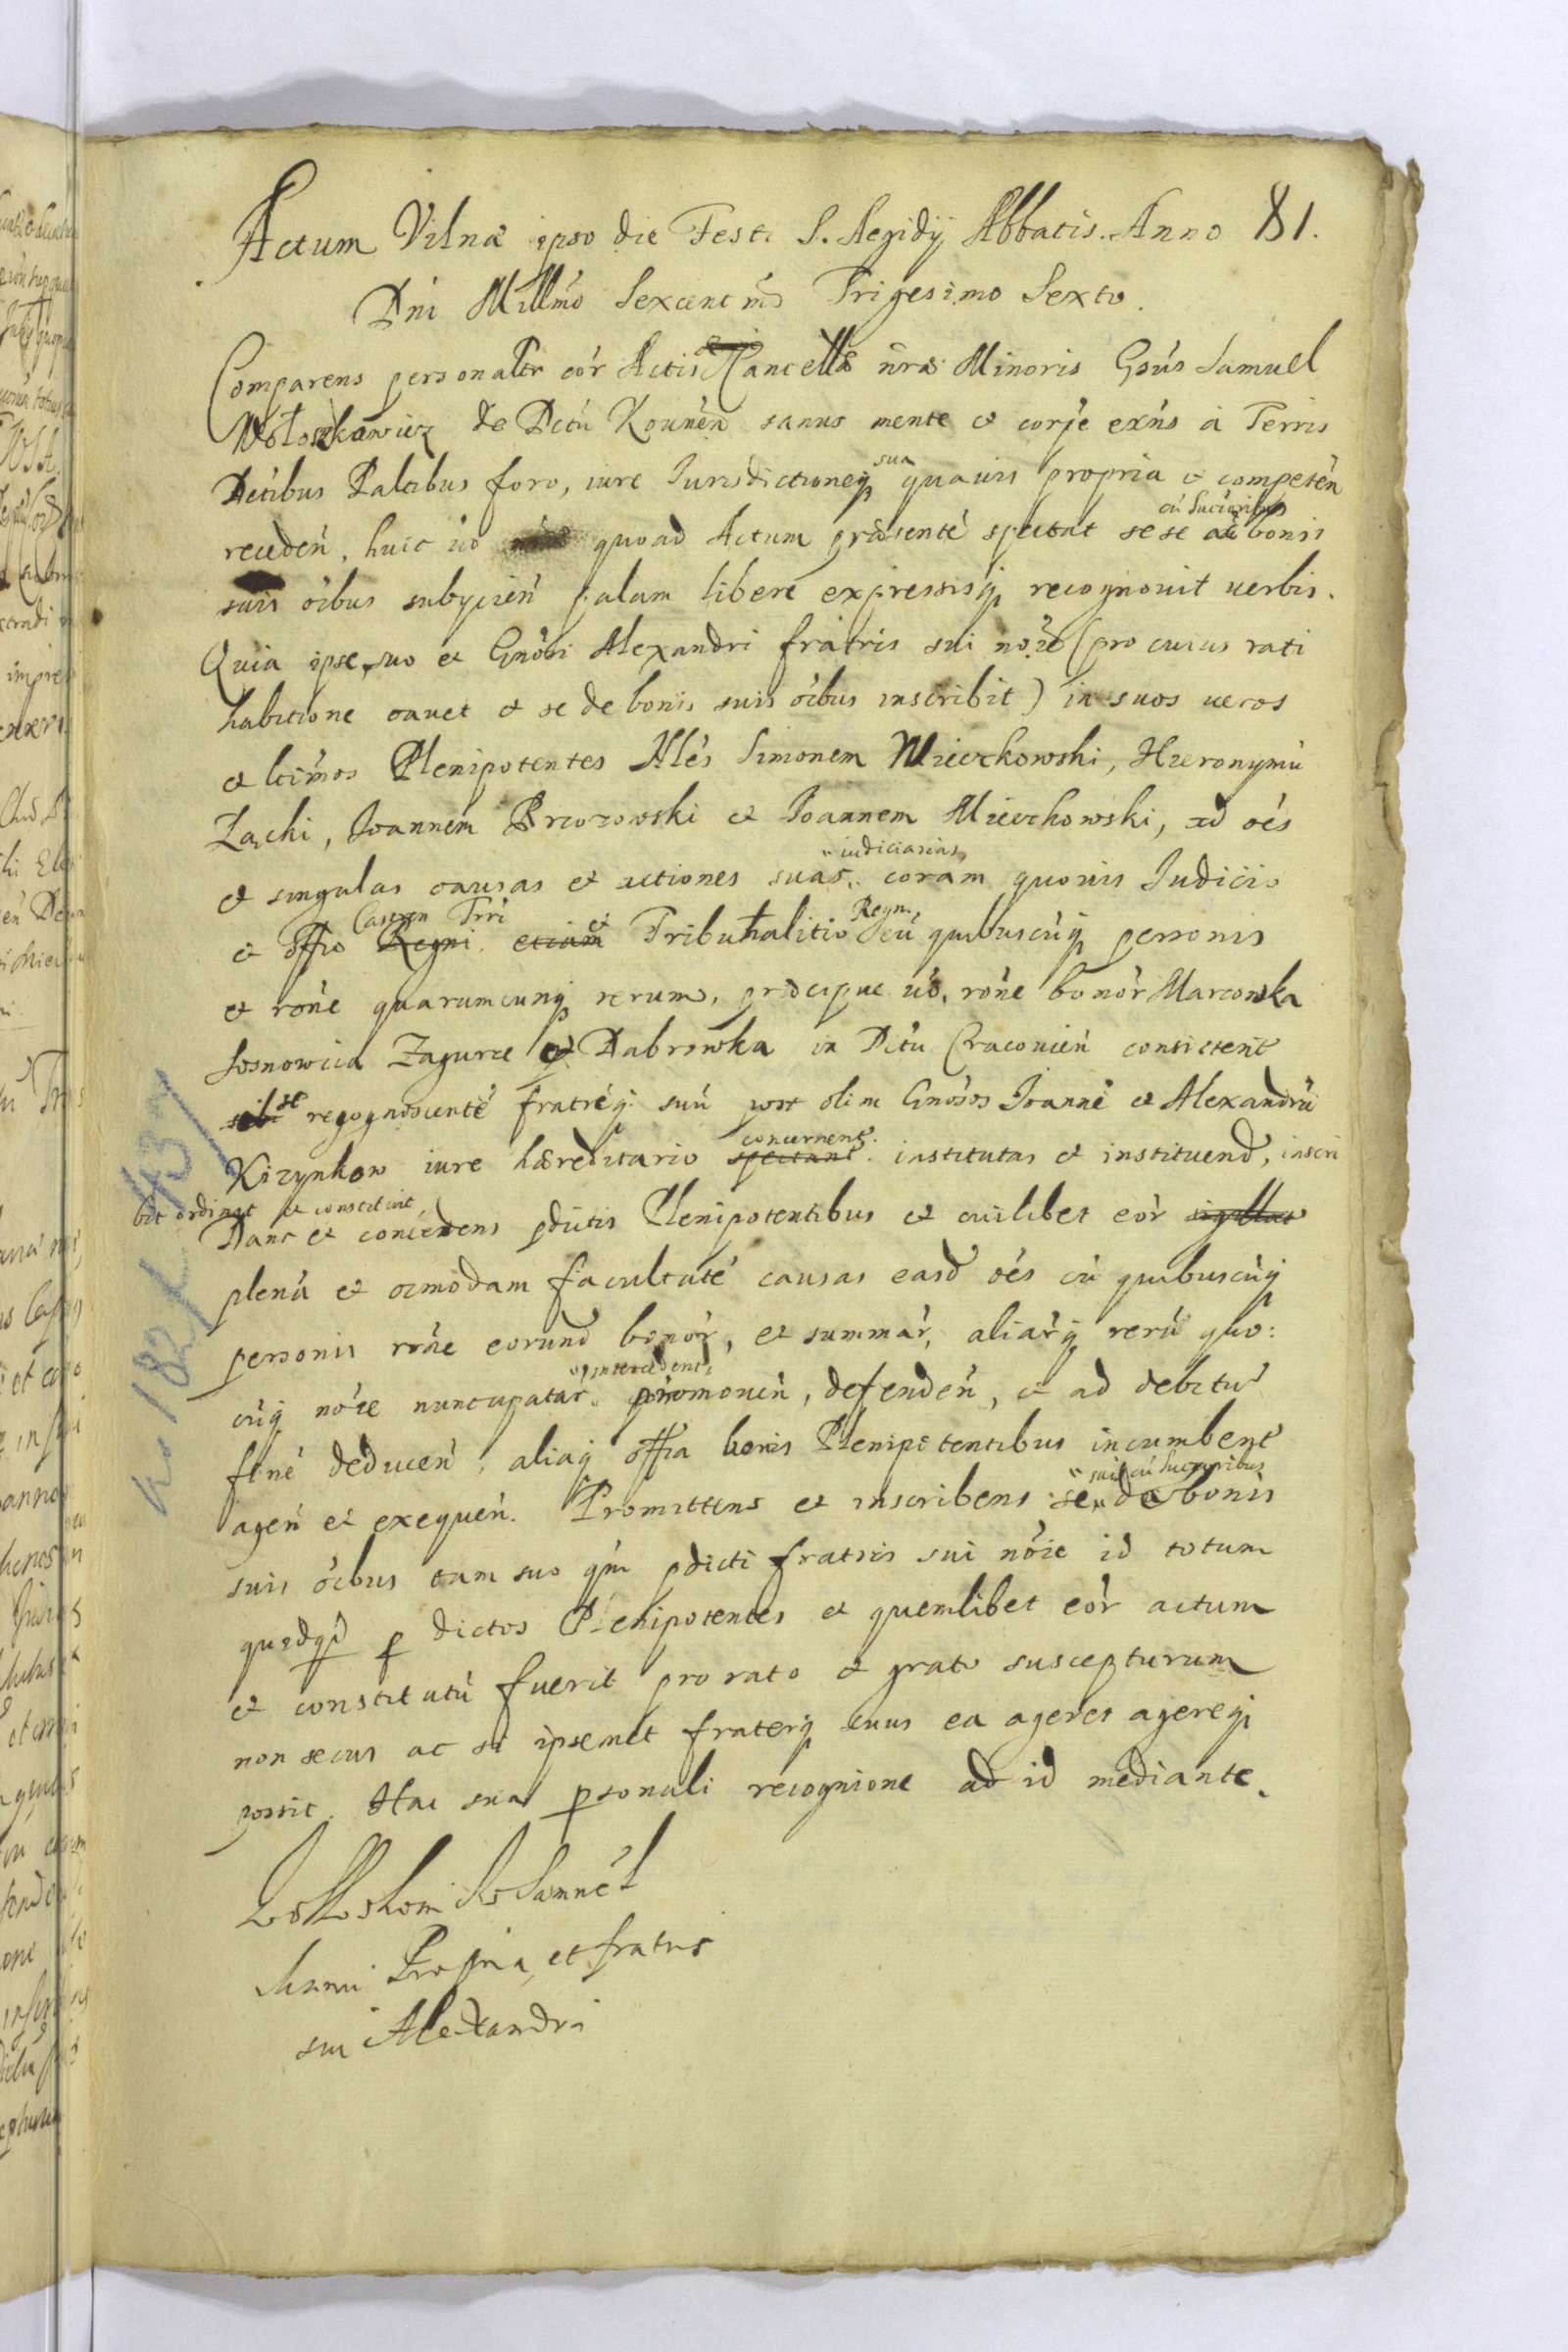 81.
Actum Vilnæ ipso die Festi S. Aegidij Abbatis. Anno
Dńi Millmó Sexcent mó Trigesimo Sexto.
Comparens personaltr cór Actis Cancellæ nræ Minoris Gsús Samuel
Wołoszkowicz de Dctú Kounén sanus mente et corpe exńs à Terris
Dctibus Paltibus foro, iure Iurisdictioneq sua quauis propria et competén
receden, huic úo quoad Actum præsenté spectat sese ac bonis cú Sucćoribus
suis óibus subycien palam libere expressisq recognouit uerbis.
Quia ipse suo et Gnósi Alexandri fratris sui nóie (pro cuius rati
habitione cauet et se de bonis suis óibus inscribit) in suos ueros
et ltimos Plenipotentes Nlés Simonem Mieczkowski, Hieronymú
Zacki, Ioannem Brzozowski et Ioannem Mieczkowski, ad oés
et singulas causas et actiones suas iudiciarias coram quouis Iudicio
et offo Regni Castren Trri etiam et Tribunalitio Regni cú quibuscúq personis
et róne quarumcunq rerum, præcipue úó, róne bonór Marcowka
Sosnowica Zagurze et Dabrowka in Dctu Cracouień consistent
sibi se regognoscenté fratréq suú post olim Gnósos Ioanné et Alexandrú
Kizynkow iure hæreditario spectant concernent. institutas et instituend, inscri
bit ordinat et constituit
Dans et concedens pdictis Plenipotentibus et cuilibet eór
plená et oimodam facultaté causas easd oés cú quibuscúq
personis róne eorund bonór, et summár, aliarq rerú quo:
cúq nóie nuncupatar intercedent, promouén, defendén, et ad debitú
finé deducén, aliaq offia bonis Plenipotentibus incumbent
agén et exequén. Promittens et inscribens se suis cú Sucćoribus de bonis
suis óibus tam suo qm pdicti fratris sui nóie id totum
quidqd p dictos Plenipotentes et quemlibet eór actum
et constitutú fuerit pro rato et grato suscepturum
non secus ac si ipsemet fraterq eius ea ageret agereq
possit. Hac sua psonali recognione ad id mediante.
Samuel
Manu Propria et fratris
sui Alexandri